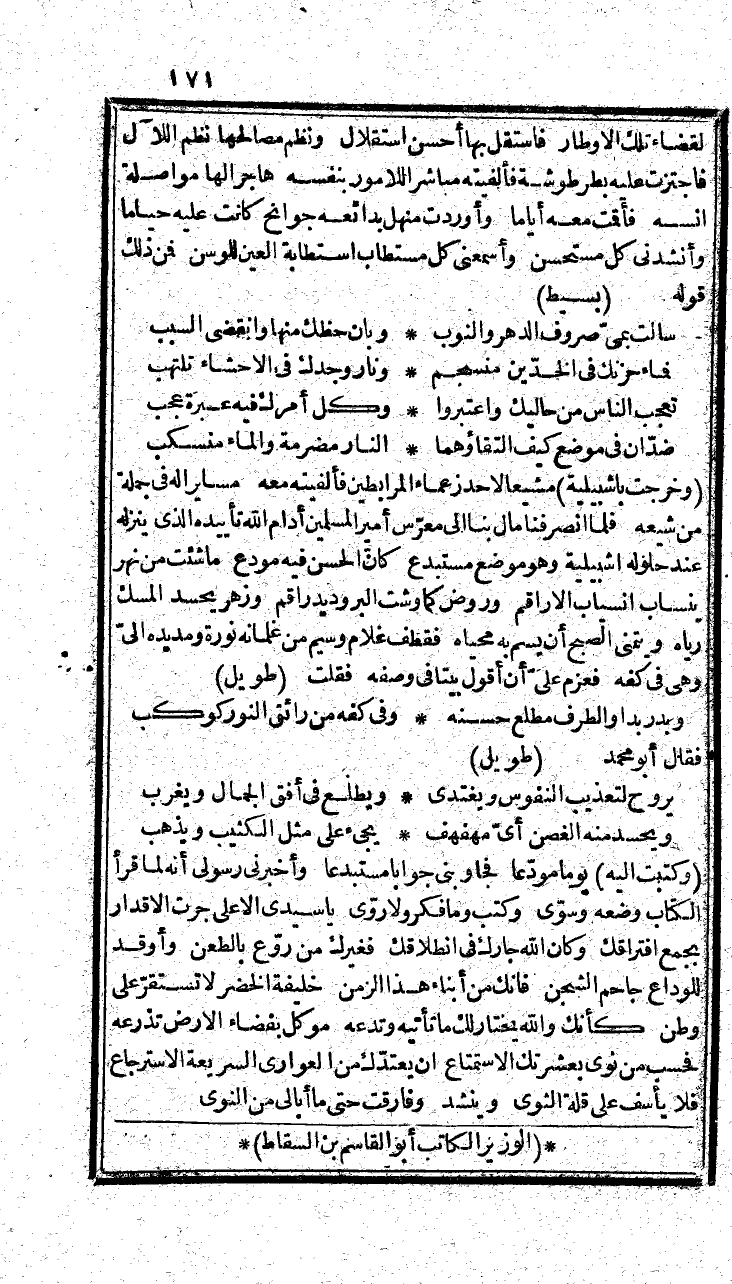 ١٧١
لقضاء تلك الاوطار فاستقل بها أحسن استقلال ونظم مصالحها نظم اللآل
فاجتزت عليه بطرطوشة فألفيته مباشر اللامور بنفسه هاجرا لها مواصلة
انسه فأقمت معه أياما وأوردت منهل بدائعه جوانح كانت عليه حياما
وأنشدنى كل مستحسن وأسمعنى كل مستطاب استطابة العين للوسن فمن ذلك
قوله (بسيط)
سالت بمىّ صروف الدهر والنوب * وبان حظك منها وانقضى السبب
فماء حزنك فى الخدّين منسجم * ونار وجدك فى الاحشاء تلتهب
تعجب الناس من حاليك واعتبروا * وكل أمرك فيه عبرة عجب
ضدّان فى موضع كيف التقاؤهما * النار مضرمة والماء منسكب
(وخرجت باشبيلية) مشيعا لاحد زعماء المرابطين فألفيته معه مسايرا له فى جملة
من شيعه فلما انصرفنا مال بنا الى معرّس أمير المسلمين أدام الله تأييده الذى ينزله
عند حلوله اشبيلية وهو موضع مستبدع كانّ الحسن فيه مودع ماشئت من نهر
ينساب انسياب الاراقم وروض كما وشت البرود يد راقم وزهر يحسد المسك
رياه ويتمنى الصبح أن يسم به محياه فقطف غلام وسيم من غلمانه نورة ومد يده الىّ
وهى فى كفه فعزم علىّ أن أقول بيتا فى وصفه فقلت (طويل)
وبدر بدا والطرف مطلع حسنه * وفى كفه من رائق النور كوكب
فقال أبو محمد (طويل)
يروح لتعذيب النفوس ويغتدى * ويطلع فى أفق الجمال ويغرب
ويحسد منه الغصن أىّ مهفهف * يجىء على مثل الكثيب ويذهب
(وكتبت اليه) يوما مودّعا فجاوبنى جوابا مستبدعا وأخبرنى رسولى أنه لما قرأ
الكتاب وضعه وسوّى وكتب وما فكر ولا روّى ياسيدى الاعلى جرت الاقدار
بجمع افتراقك وكان الله جارك فى انطلاقك فغيرك من روّع بالظعن وأوقد
للوداع جاحم الشجن فانك من أبناء هذا الزمن خليفة الخضر لا تستقرّ على
وطن كأنك والله يختار لك ما تأتيه وتدعه موكل بفضاء الارض تذرعه
فحسب من نوى بعشرتك الاستمتاع ان يعتدّك من العوارى السريعة الاسترجاع
فلا يأسف على قلة الثوى وينشد وفارقت حتى ما أبالى من النوى
*(الوزير الكاتب أبو القاسم بن السقاط)*